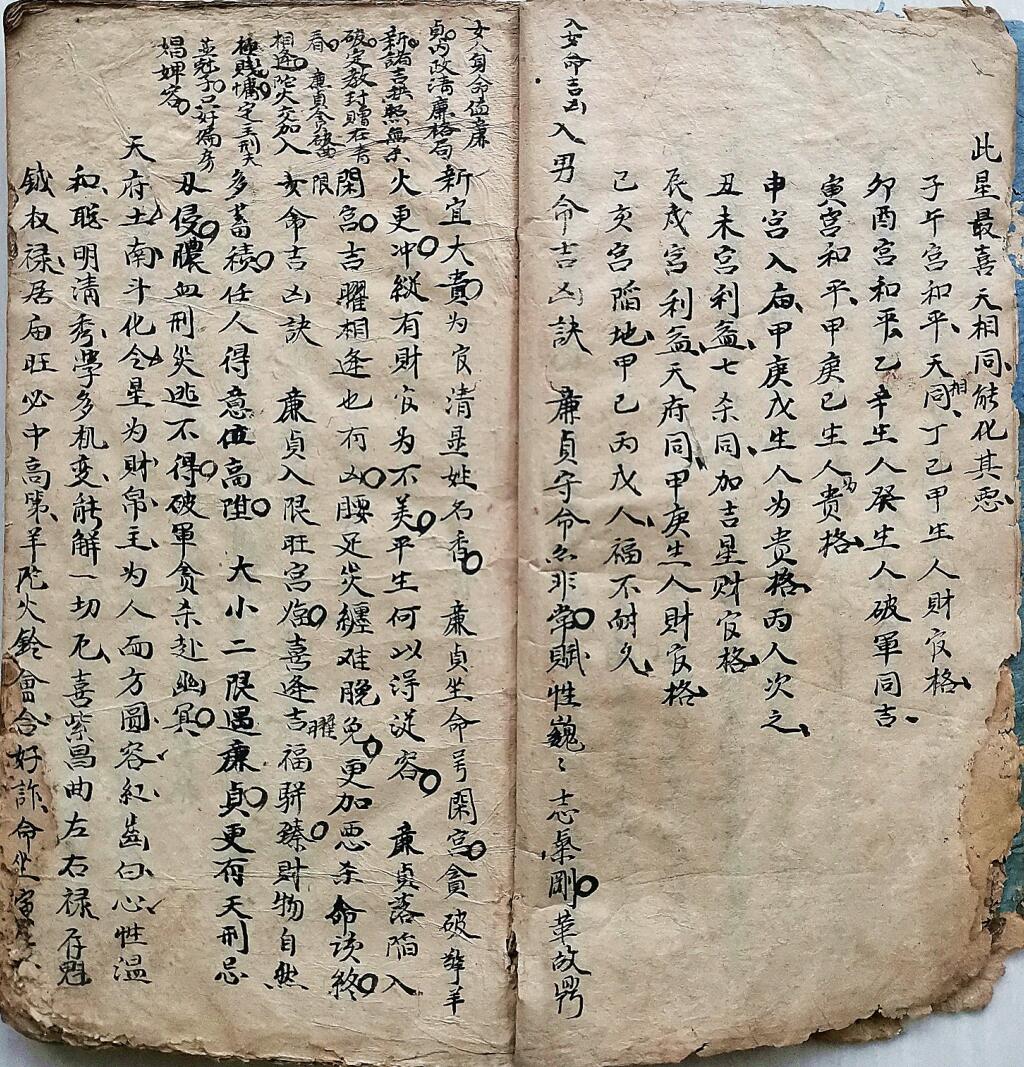 此星最喜天相同能化其恶
子午宫和平天同相丁己甲生人财官格
卯酉宫和平乙辛生人癸生人破軍同吉
寅宫和平甲庚己生人为贵格
申宫入庙甲庚戊生人为贵格丙人次之
丑未宫利益七杀同加吉星财官格
辰戌宫利益天府同甲庚生人財官格
己亥宫陷地甲己丙戊人福不耐久
入女命吉凶
入男命吉凶訣 廉貞守命亦非常賦性巍〻志氣剛革故鼎
新宜大貴为官清显姓名香 廉貞坐命号閑宫貪破擎羊
火更冲縱有財官为不美平生何以得從容 廉貞落陷入
閑宫吉曜相逢也有凶腰足災纏难晚免更加恶杀命该終
限
女命吉凶訣 廉貞入限旺宫临喜逢吉曜福駢臻財物自然
多蓄積任人得意位高陞 大小二限遇廉貞更有天刑忌
刃侵膿血刑災逃不得破軍貪杀赴幽冥
天府土南斗化令星为財帛主为人面方圆容紅齒白心性温
和聪明清秀学多机变能解一切厄喜紫昌曲左右禄存魁
鉞权禄居庙旺必中高第羊陀火鈴會合好詐命坐寅
女人身命值廉
貞内政清廉格局
新諸吉拱照無杀
破定教封贈在青
春 廉貞貪破曲
相逢陀火交加入
極賤慵定主刑夫
並尅子只好偏房
娼婢容